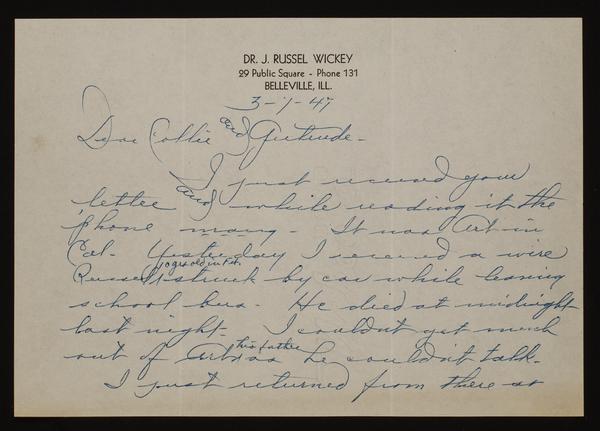 DR. J. RUSSEL WICKEY
29 Public Square - Phone 131
BELLEVILLE, ILL.
3-1-47
Dear Collie and Gertrude-
I just received your
letter and while reading it the
phone rang - It was Art in
Cal. Yesterday I received a wire
10 yrs old in Feb.
Russell struck by car while leaving
school bus - He died at midnight
last night - I couldn't get much
his father
out of Art as he couldn't talk.
I just returned from there at